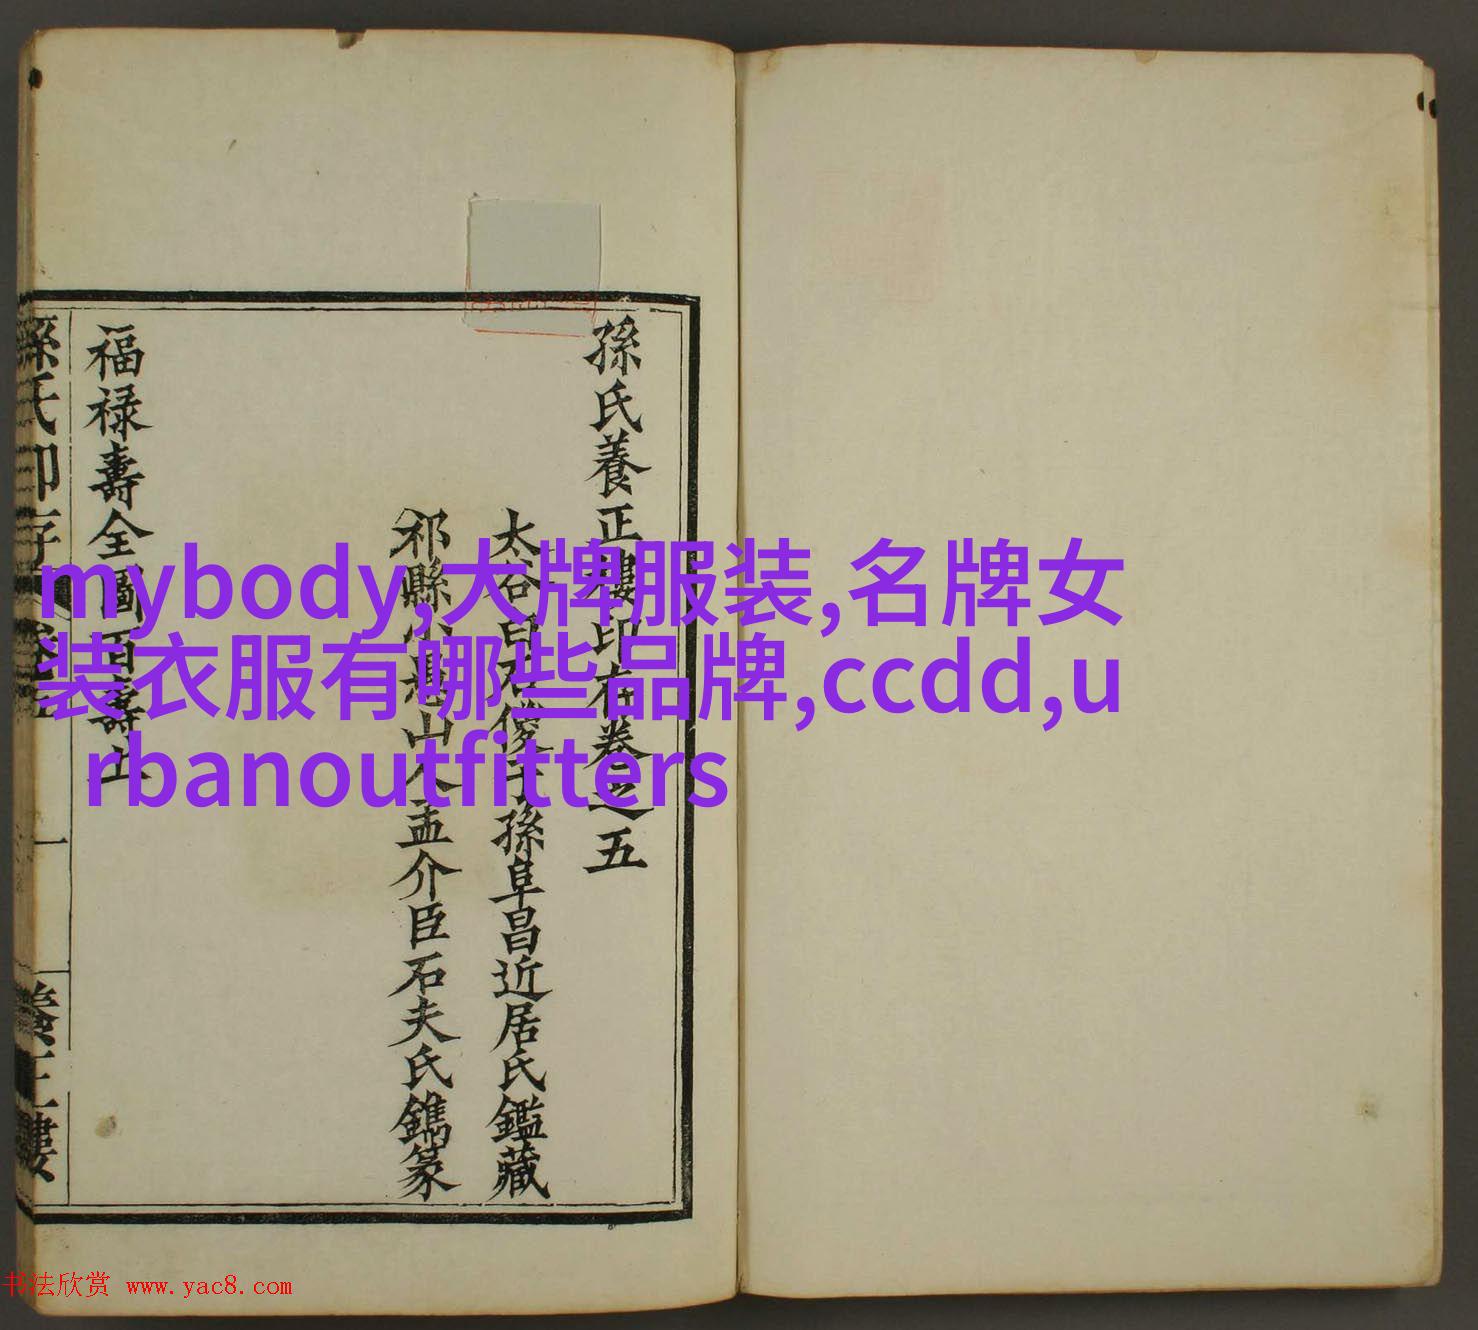 孫氏養正樓印存卷之五
太谷 孫阜昌近居氏鑑藏
祁縣小 山人孟介臣石夫氏鐫篆
福禄壽全圖百壽
孫氏印存
一
養正樓
mybody,大牌服装,名牌女
装衣服有哪些品牌,ccdd,u
rbanoutfitters
书法欣赏 www.yac8.com